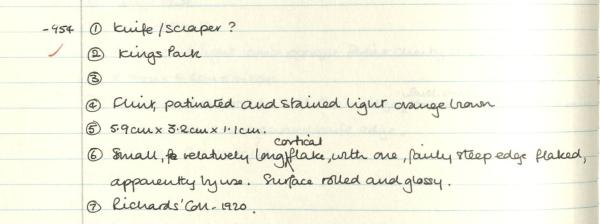 -454 ① Knife/scraper?
② Kings Park
③
④ Flint, patinated and stained light orange brown
⑤ 5.9cm x 3.2cm x 1.1cm.
⑥ Small, relatively long cortical flake, with one, fairly steep edge flaked,
apparently by use. Surface rolled and glossy.
⑦ Richards' Coll - 1920.